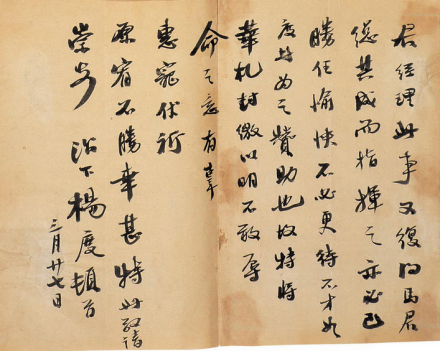 君經理此事又復得馬君
總其成而指揮之亦必已
勝任愉快不必更待不才如
度者為之贊助也故特將
華札封繳以明不敢辱
命之意有辜
惠寵伏祈
原宥不勝幸甚特此敬請
崇安
治下楊度頓首
三月廿七日